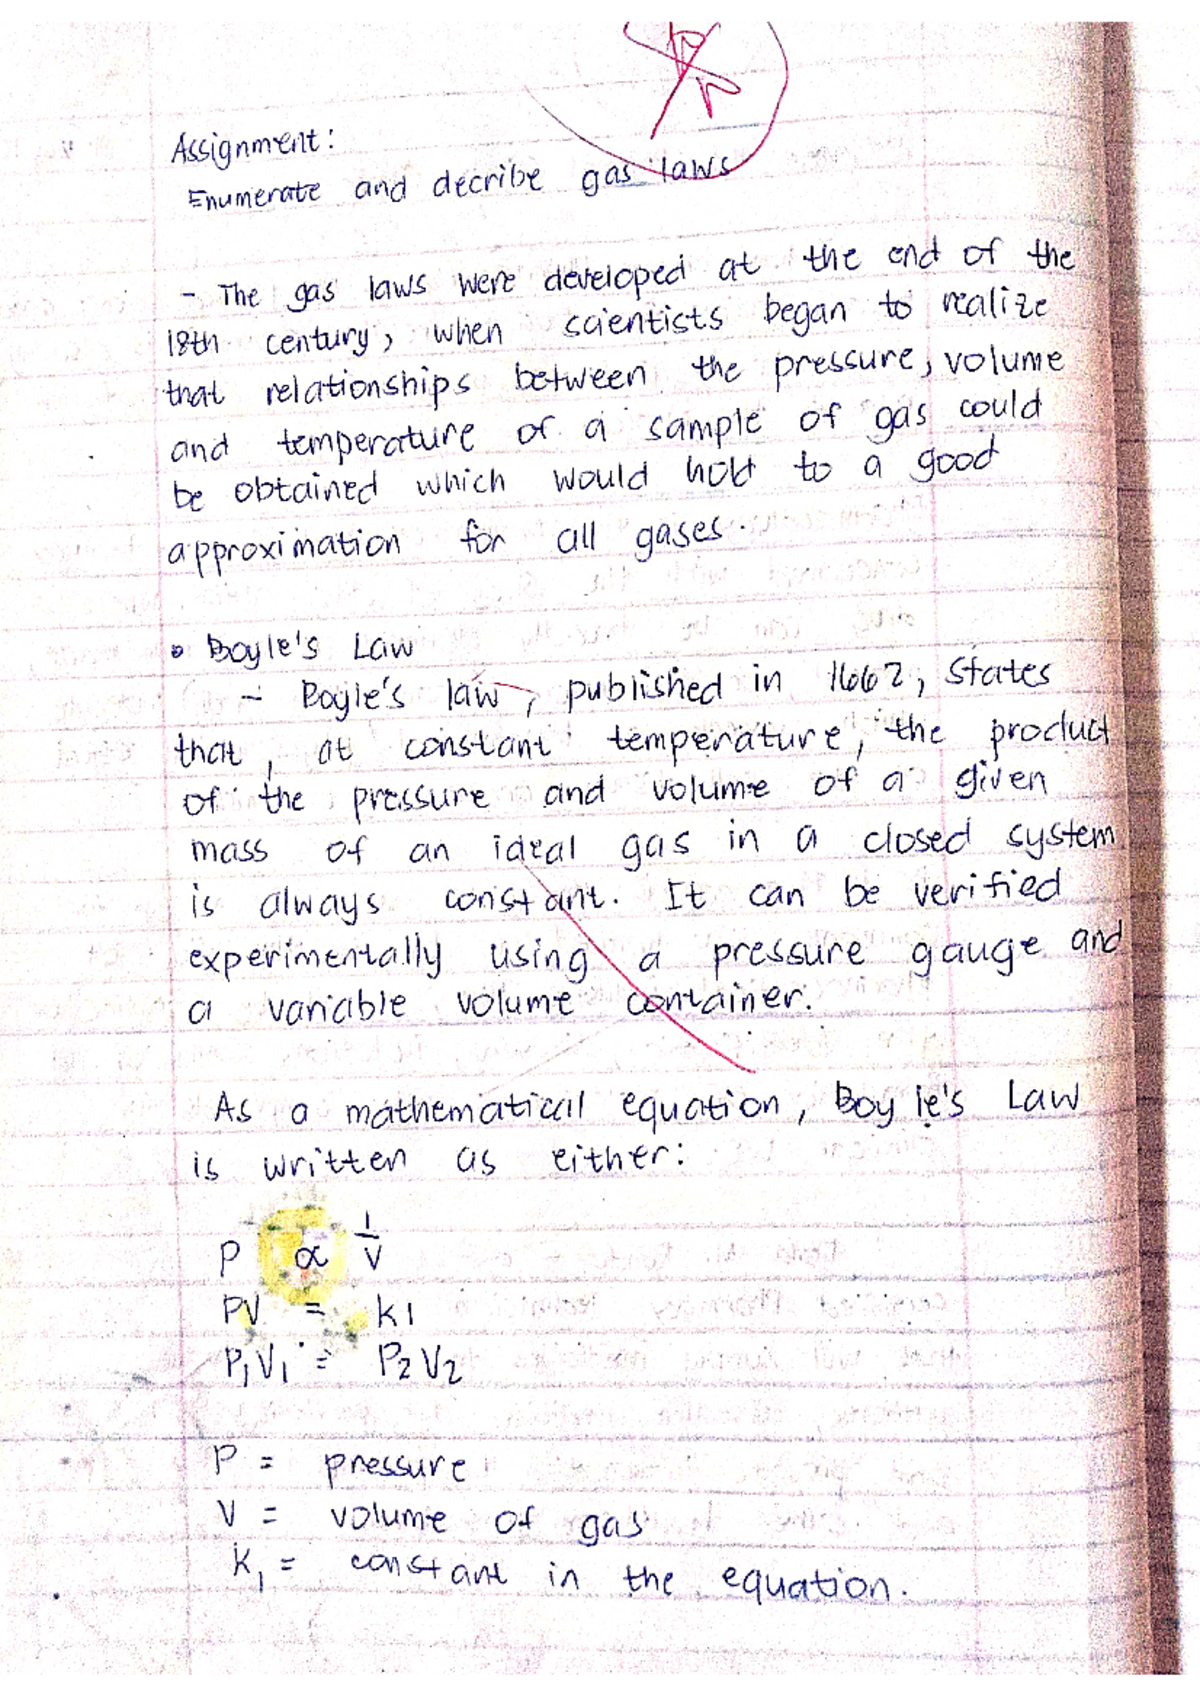 Assignment:
Enumerate and decribe gas laws
- The gas laws were developed at the end of the
18th century, when scientists began to realize
that relationships between the pressure, volume
and temperature of a sample of gas could
be obtained which would hold to a good
approximation for all gases.
• Boyle's Law
- Boyle's law, published in 1662, states
that, at constant temperature, the product
of the pressure and volume of a given
mass of an ideal gas in a closed system
is always constant. It can be verified
experimentally using a pressure gauge and
a variable volume container.
As a mathematical equation, Boyle's Law
is written as either:
P ∝ 1/V
PV = k1
P₁V₁ = P₂V₂
P = pressure
V = volume of gas
k₁ = constant in the equation.